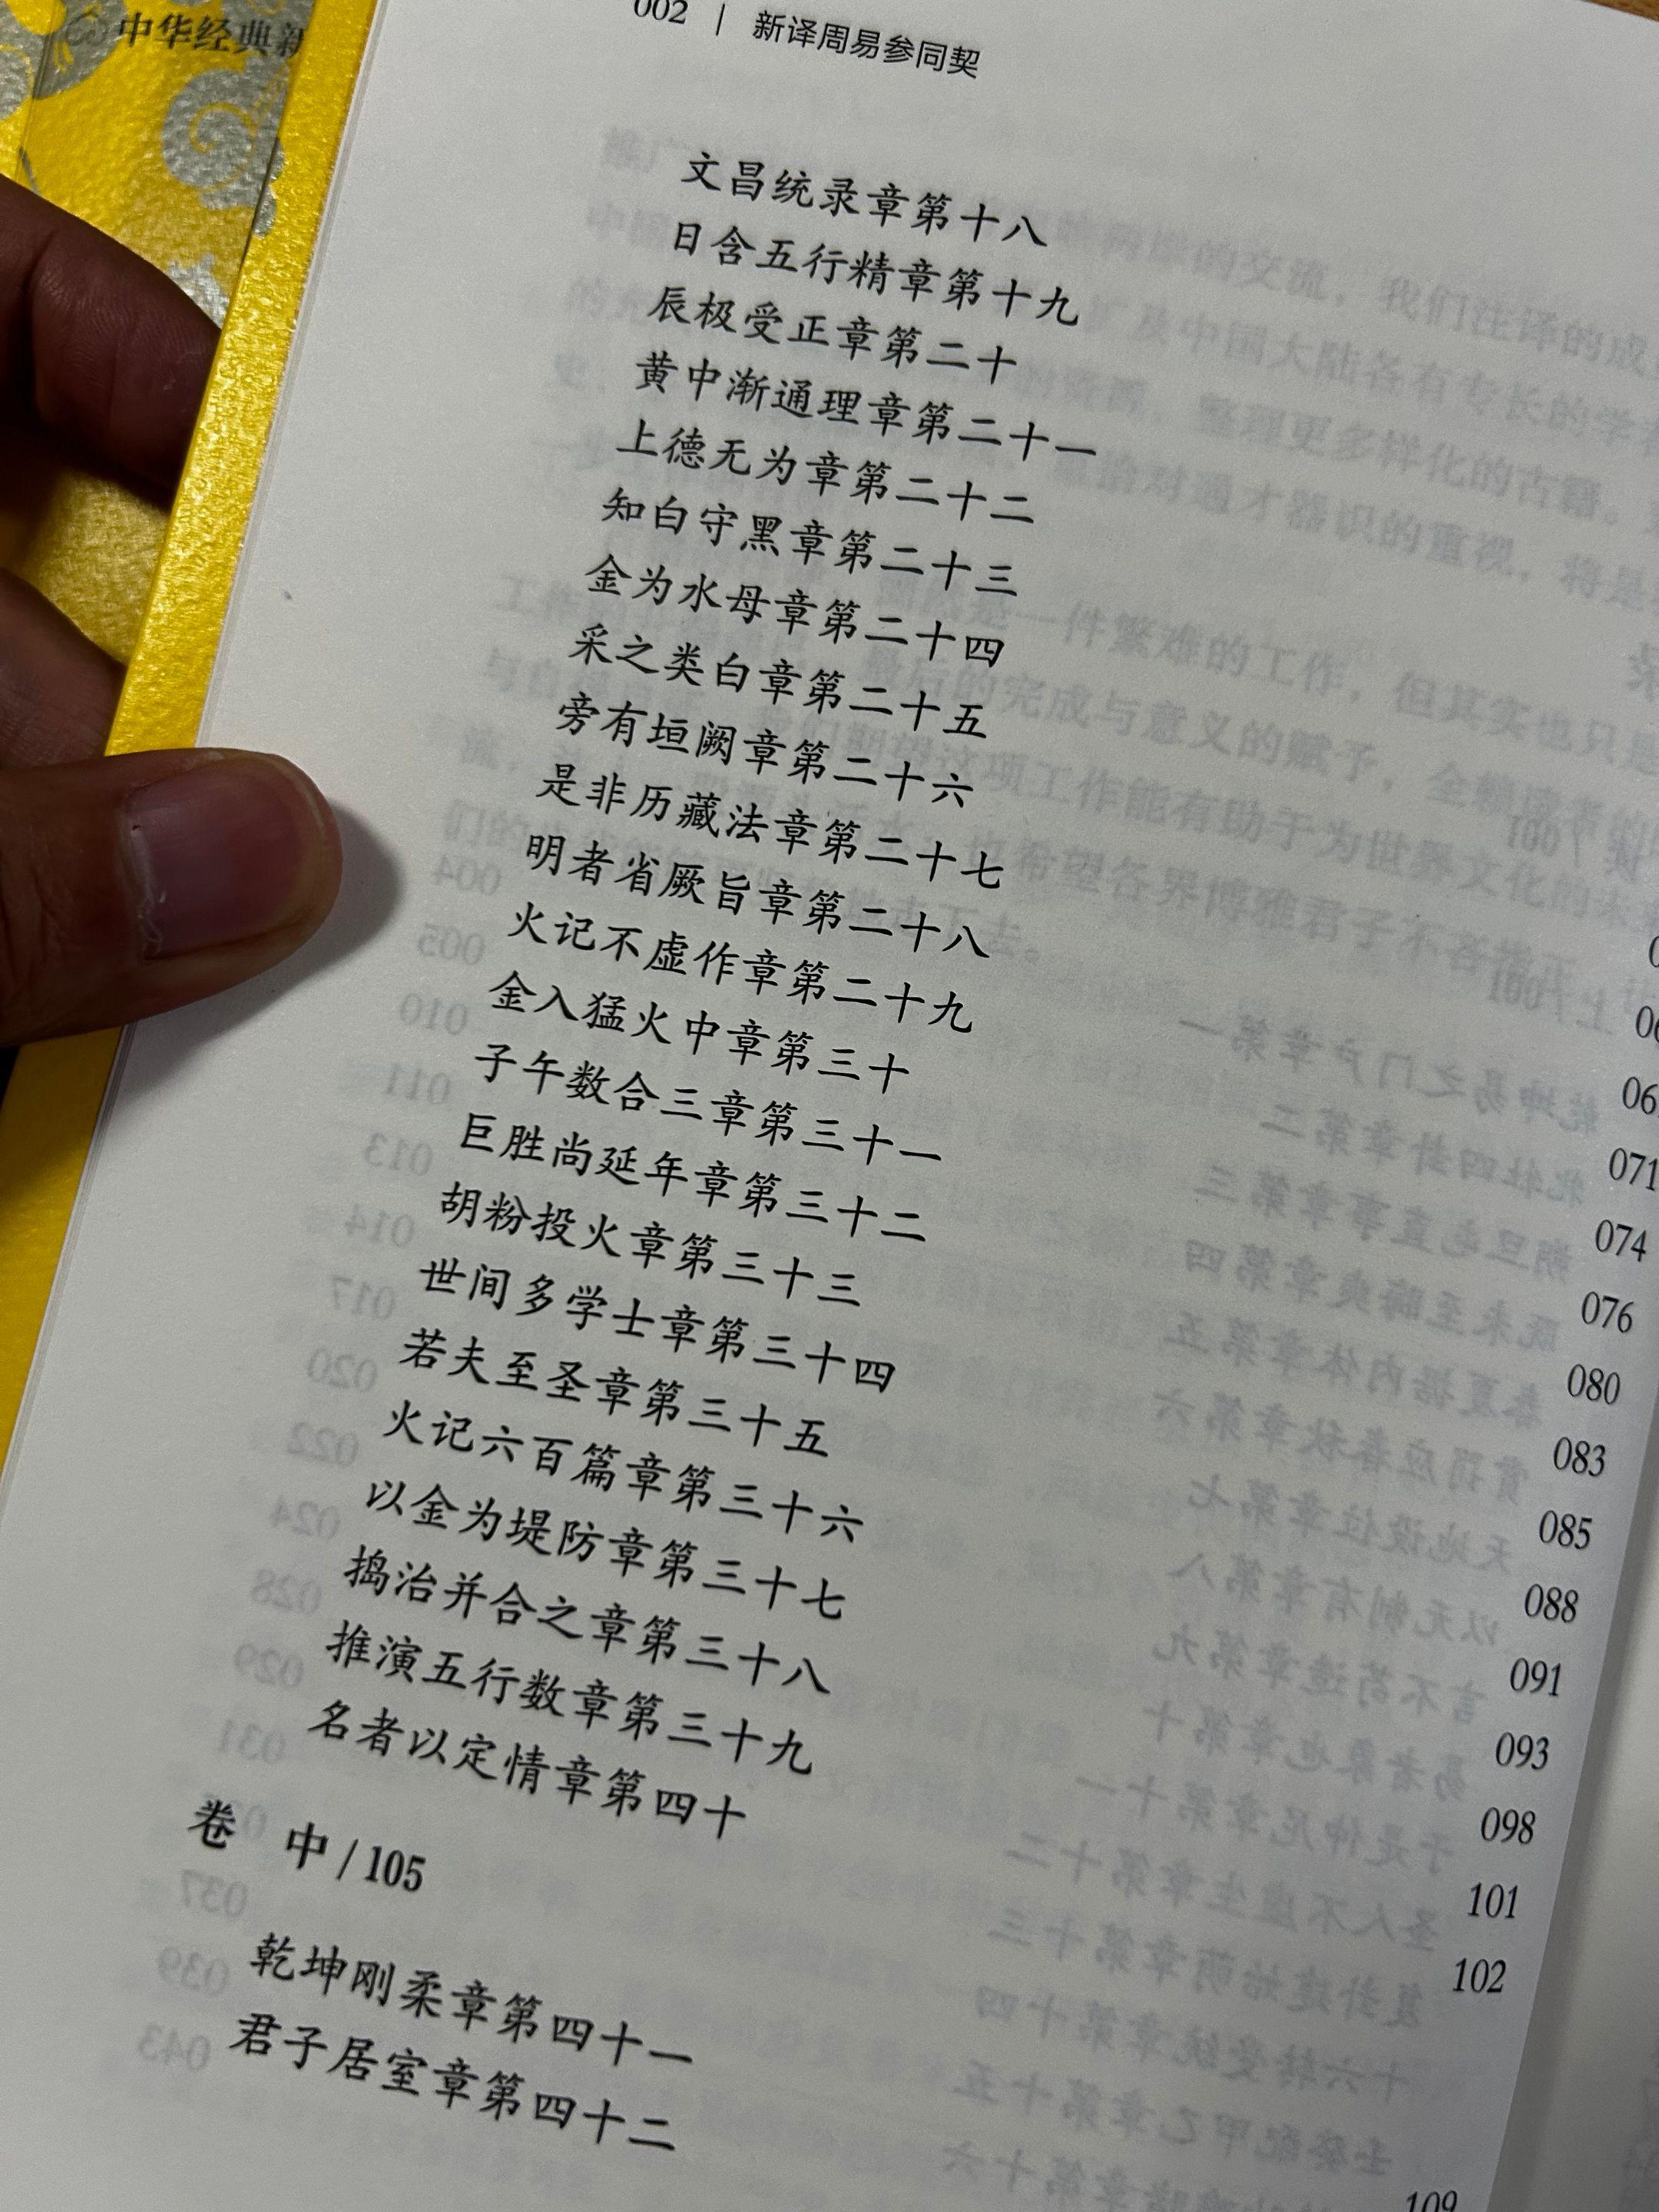 中华经典新
002 | 新译周易参同契
文昌统录章第十八
日含五行精章第十九
辰极受正章第二十
黄中渐通理章第二十一
上德无为章第二十二
知白守黑章第二十三
金为水母章第二十四
采之类白章第二十五
旁有垣阙章第二十六
是非历藏法章第二十七
明者省厥旨章第二十八
火记不虚作章第二十九 071
金入猛火中章第三十 074
子午数合三章第三十一 076
巨胜尚延年章第三十二 080
胡粉投火章第三十三 083
世间多学士章第三十四 085
若夫至圣章第三十五 088
火记六百篇章第三十六 091
以金为堤防章第三十七 093
捣治并合之章第三十八 098
推演五行数章第三十九 101
名者以定情章第四十 102
卷 中 / 105
乾坤刚柔章第四十一 109
君子居室章第四十二